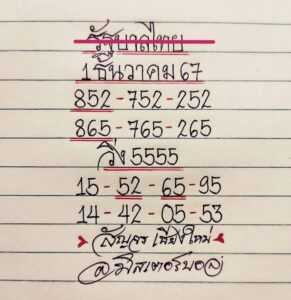 รัฐบาลไทย
1 ธันวาคม 67
852-752-252
865-765-265
วิ่ง 5555
15-52-65-95
14-42-05-53
สัญจร เชียงใหม่